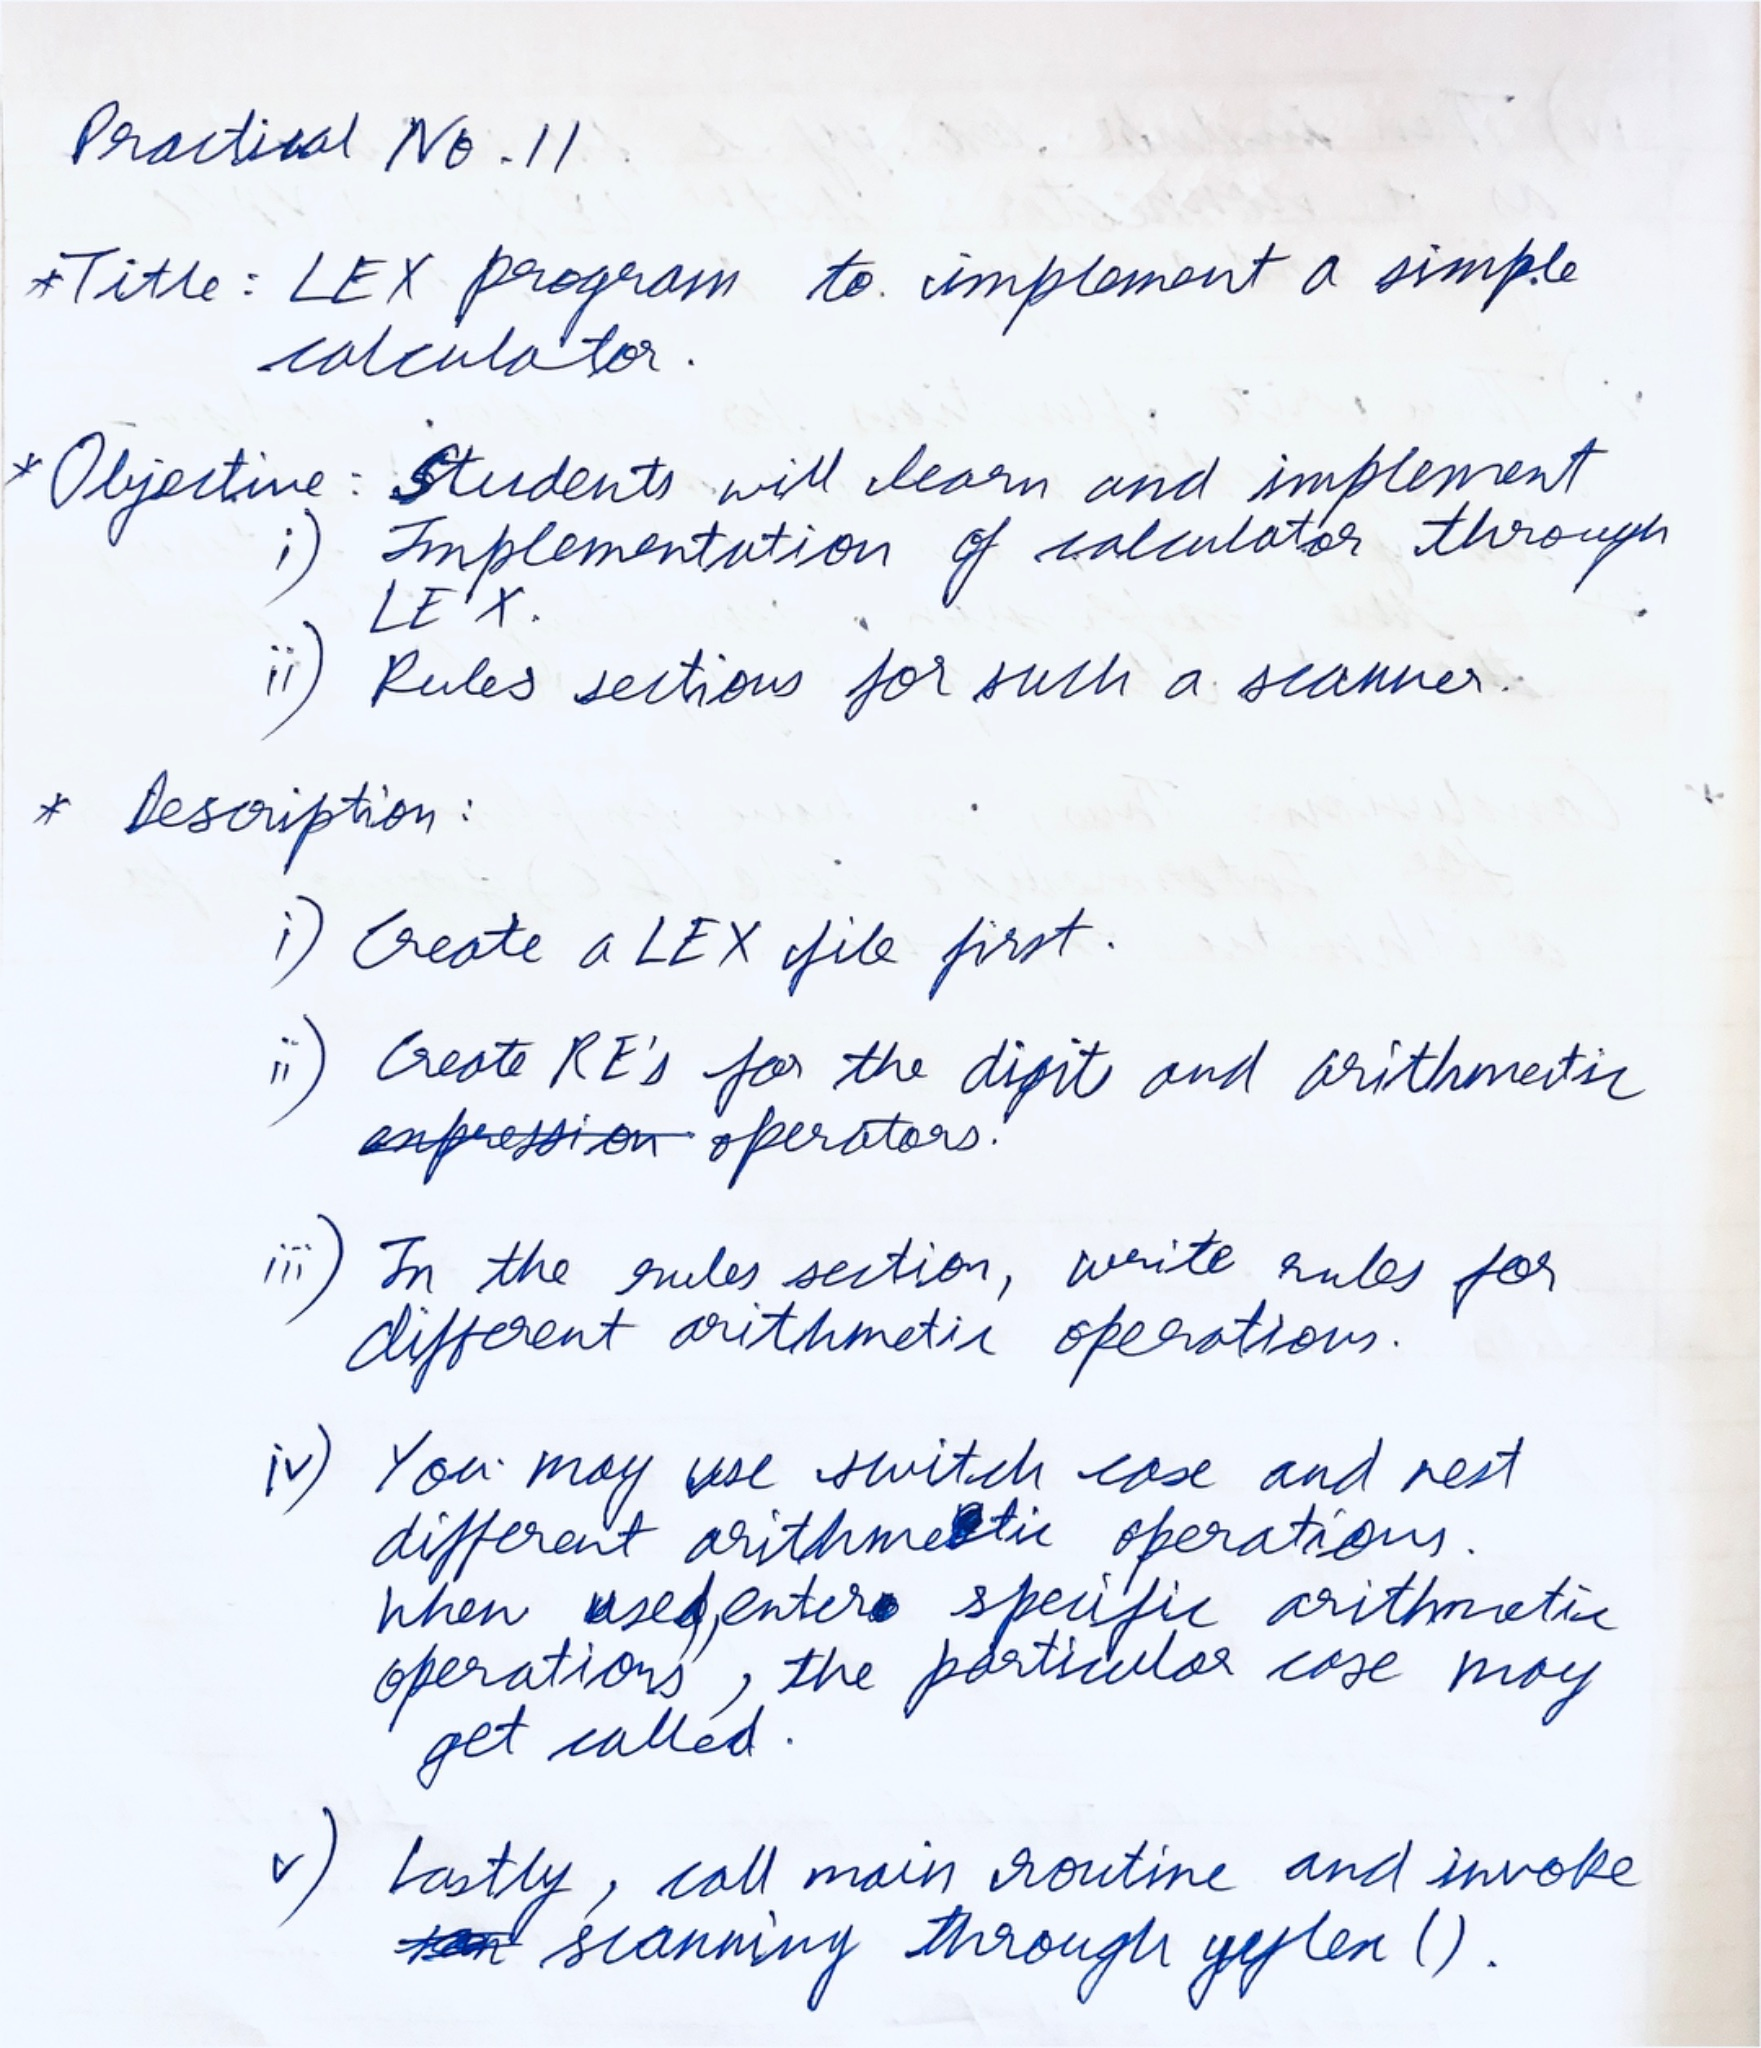 Practical No. 11
*Title: LEX program to implement a simple
calculator.
*Objective: Students will learn and implement
i) Implementation of calculator through
LEX.
ii) Rules sections for such a scanner.
* Description:
i) Create a LEX file first.
ii) Create RE's for the digit and arithmetic
expression operators.
iii) In the rules section, write rules for
different arithmetic operations.
iv) You may use switch case and nest
different arithmetic operations.
When used, enters specific arithmetic
operations, the particular case may
get called.
v) Lastly, call main routine and invoke
scan scanning through yylex ().